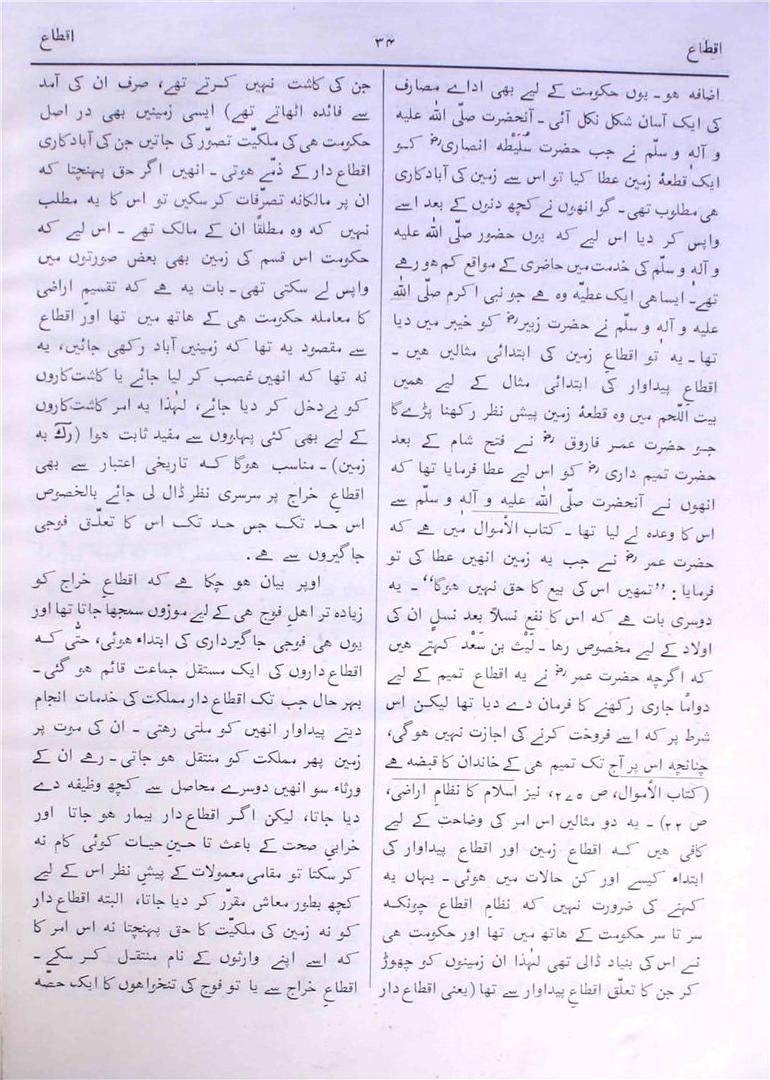 اقطاع
۳۴
اقطاع
اضافہ ہو ۔ یوں حکومت کے لیے بھی اداے مصارف
کی ایک آسان شکل نکل آئی ۔ آنحضرت صلّی اللہ علیہ
و آلہ و سلّم نے جب حضرت سُلَیْطہ انصاری رض کو
ایک قطعۂ زمین عطا کیا تو اس سے زمین کی آبادکاری
ھی مطلوب تھی ۔ گو انھوں نے کچھ دنوں کے بعد اسے
واپس کر دیا اس لیے کہ یوں حضور صلّی اللہ علیہ
و آلہ و سلّم کی خدمت میں حاضری کے مواقع کم ھو رہے
تھے ۔ ایسا ھی ایک عطیّہ وہ ہے جو نبی اکرم صلّی اللہ
علیہ و آلہ و سلّم نے حضرت زبیر رض کو خیبر میں دیا
تھا ۔ یہ تو اقطاعِ زمین کی ابتدائی مثالیں ھیں ۔
اقطاعِ پیداوار کی ابتدائی مثال کے لیے ھمیں
بیت اللّحم میں وہ قطعۂ زمین پیش نظر رکھنا پڑے گا
جو حضرت عمر فاروق رض نے فتح شام کے بعد
حضرت تمیم داری رض کو اس لیے عطا فرمایا تھا کہ
انھوں نے آنحضرت صلّی اللہ علیہ و آلہ و سلّم سے
اس کا وعدہ لے لیا تھا ۔ کتاب الأموال میں ہے کہ
حضرت عمر رض نے جب یہ زمین انھیں عطا کی تو
فرمایا : ”تمھیں اس کی بیع کا حق نہیں ھوگا“ ۔ یہ
دوسری بات ہے کہ اس کا نفع نسلاً بعد نسلٍ ان کی
اولاد کے لیے مخصوص رھا ۔ لَیْث بن سَعْد کہتے ھیں
کہ اگرچہ حضرت عمر رض نے یہ اقطاع تمیم کے لیے
دواماً جاری رکھنے کا فرمان دے دیا تھا لیکن اس
شرط پر کہ اسے فروخت کرنے کی اجازت نہیں ھوگی،
چنانچہ اس پر آج تک تمیم ھی کے خاندان کا قبضہ ہے
(کتاب الأموال، ص ۲۷۵، نیز اسلام کا نظامِ اراضی،
ص ۲۲) ۔ یہ دو مثالیں اس امر کی وضاحت کے لیے
کافی ھیں کہ اقطاعِ زمین اور اقطاع پیداوار کی
ابتداء کیسے اور کن حالات میں ھوئی ۔ یہاں یہ
کہنے کی ضرورت نہیں کہ نظامِ اقطاع چونکہ
سر تا سر حکومت کے ھاتھ میں تھا اور حکومت ھی
نے اس کی بنیاد ڈالی تھی لہٰذا ان زمینوں کو چھوڑ
کر جن کا تعلّق اقطاعِ پیداوار سے تھا (یعنی اقطاع دار
جن کی کاشت نہیں کرتے تھے، صرف ان کی آمد
سے فائدہ اٹھاتے تھے) ایسی زمینیں بھی در اصل
حکومت ھی کی ملکیّت تصوّر کی جاتیں جن کی آبادکاری
اقطاع دار کے ذمّے ھوتی ۔ انھیں اگر حق پہنچتا کہ
ان پر مالکانہ تصرّفات کر سکیں تو اس کا یہ مطلب
نہیں کہ وہ مطلقًا ان کے مالک تھے ۔ اس لیے کہ
حکومت اس قسم کی زمین بھی بعض صورتوں میں
واپس لے سکتی تھی ۔ بات یہ ہے کہ تقسیم اراضی
کا معاملہ حکومت ھی کے ھاتھ میں تھا اور اقطاع
سے مقصود یہ تھا کہ زمینیں آباد رکھی جائیں، یہ
نہ تھا کہ انھیں غصب کر لیا جائے یا کاشت کاروں
کو بےدخل کر دیا جائے، لہٰذا یہ امر کاشت کاروں
کے لیے بھی کئی پہلووں سے مفید ثابت ھوا (رکّ بہ
زمین) ۔ مناسب ھوگا کہ تاریخی اعتبار سے بھی
اقطاعِ خراج پر سرسری نظر ڈال لی جائے بالخصوص
اس حد تک جس حد تک اس کا تعلّق فوجی
جاگیروں سے ہے .
اوپر بیان ھو چکا ہے کہ اقطاعِ خراج کو
زیادہ تر اھلِ فوج ھی کے لیے موزوں سمجھا جاتا تھا اور
یوں ھی فوجی جاگیرداری کی ابتداء ھوئی، حتّٰی کہ
اقطاع داروں کی ایک مستقل جماعت قائم ھو گئی ۔
بہر حال جب تک اقطاع دار مملکت کی خدمات انجام
دیتے پیداوار انھیں کو ملتی رھتی ۔ ان کی موت پر
زمین پھر مملکت کو منتقل ھو جاتی ۔ رہے ان کے
ورثاء سو انھیں دوسرے محاصل سے کچھ وظیفہ دے
دیا جاتا، لیکن اگر اقطاع دار بیمار ھو جاتا اور
خرابیِ صحت کے باعث تا حینِ حیات کوئی کام نہ
کر سکتا تو مقامی معمولات کے پیشِ نظر اس کے لیے
کچھ بطورِ معاش مقرّر کر دیا جاتا، البتہ اقطاع دار
کو نہ زمین کی ملکیّت کا حق پہنچتا نہ اس امر کا
کہ اسے اپنے وارثوں کے نام منتقل کر سکے ۔
اقطاعِ خراج سے یا تو فوج کی تنخواھوں کا ایک حصّہ